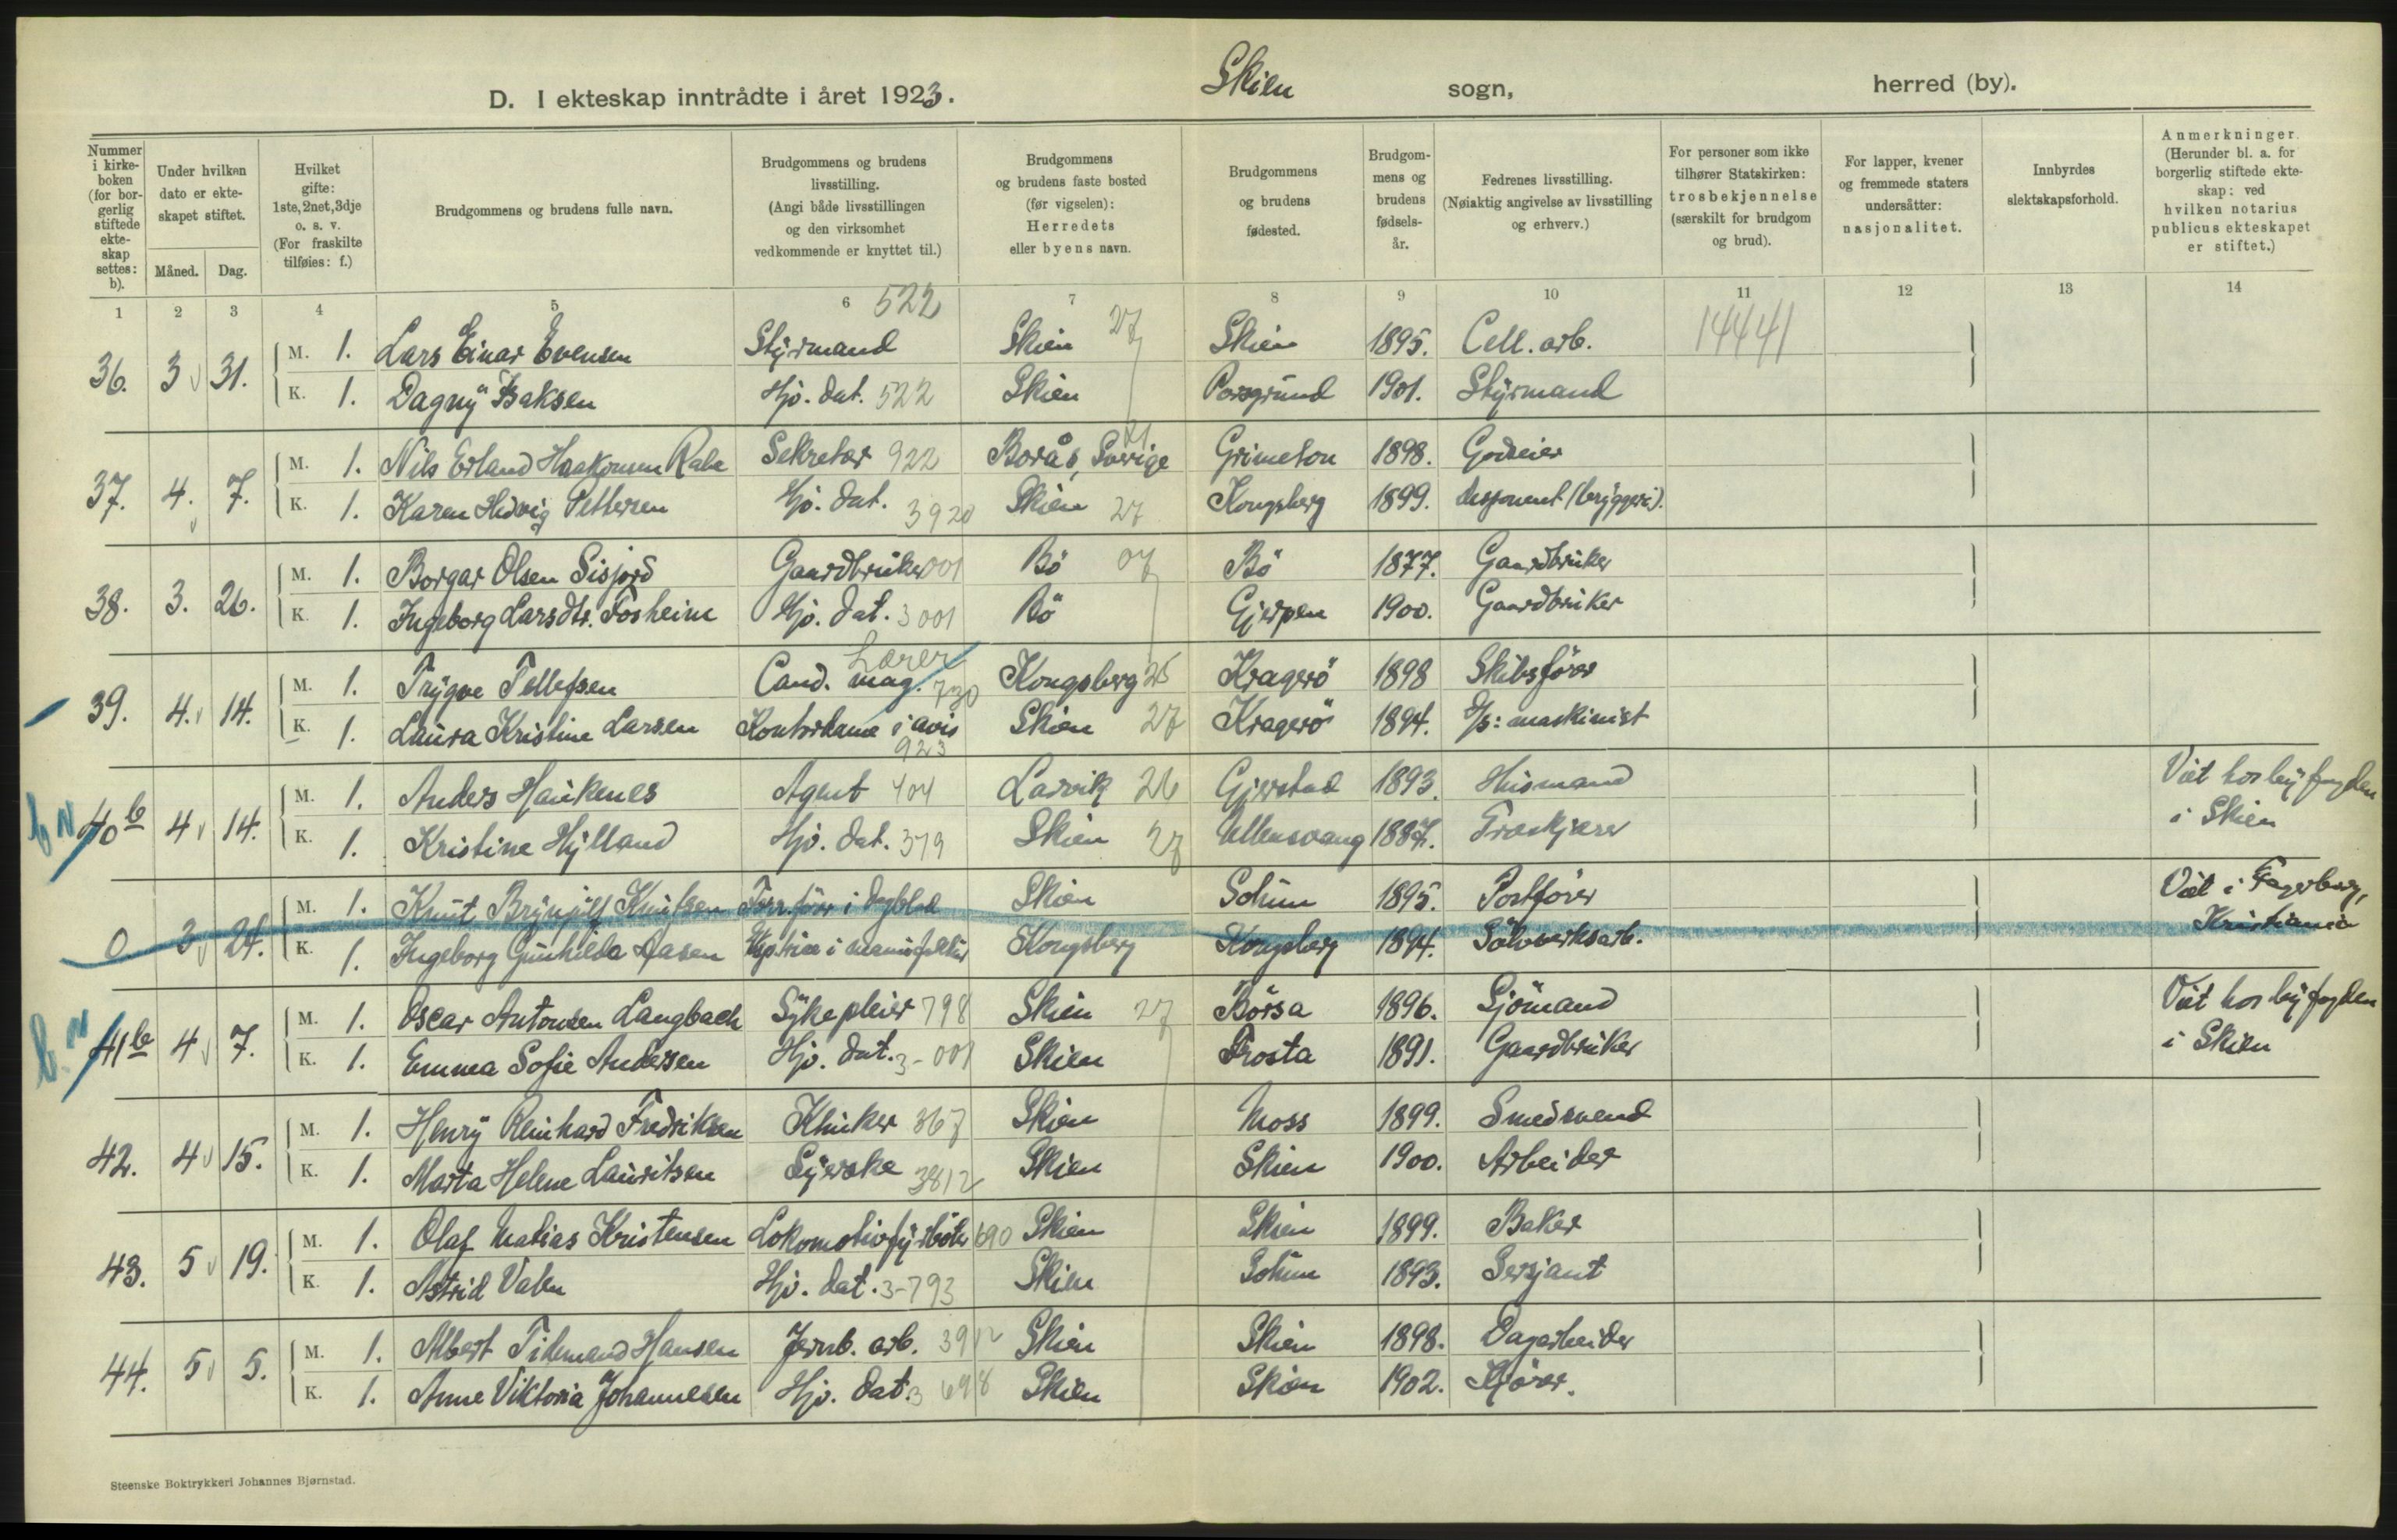 D. I ekteskap inntrådte i året 1923.
Skien sogn, herred (by).
Nummer i kirke-boken (for bor-gerlig stiftede ekte-skap settes: b).
Under hvilken dato er ekte-skapet stiftet.
Måned. Dag.
Hvilket gifte: 1ste, 2net, 3dje o. s. v. (For fraskilte tilføies: f.)
Brudgommens og brudens fulle navn.
Brudgommens og brudens livsstilling. (Angi både livsstillingen og den virksomhet vedkommende er knyttet til.)
Brudgommens og brudens faste bosted (før vigselen): Herredets eller byens navn.
Brudgommens og brudens fødested.
Brudgom-mens og brudens fødsels-år.
Fedrenes livsstilling. (Nøiaktig angivelse av livsstilling og erhverv.)
For personer som ikke tilhører Statskirken: trosbekjennelse (særskilt for brudgom og brud).
For lapper, kvener og fremmede staters undersåtter: nasjonalitet.
Innbyrdes slektskapsforhold.
Anmerkninger. (Herunder bl. a. for borgerlig stiftede ekte-skap: ved hvilken notarius publicus ekteskapet er stiftet.)
1 2 3 4 5 6 7 8 9 10 11 12 13 14
36. 3 31. M. 1. Lars Einar Evensen Styrmand 522 Skien 27 Skien 1895. Cell. arb. 14441
K. 1. Dagny Isaksen Hjo. dat. 522 Skien Porsgrund 1901. Styrmand
37. 4. 7. M. 1. Nils Erland Haakonsen Rabe Sekretær 922 Borås, Sverige 21 Grimeton 1898. Godseier
K. 1. Karen Hedvig Pettersen Hjo. dat. 3920 Skien 27 Kongsberg 1899. disponent (bryggeri).
38. 3. 26. M. 1. Borgar Olsen Sisjord Gaardbruker 001 Bö 07 Bö 1877. Gaardbruker
K. 1. Ingeborg Larsdtr. Fosheim Hjo. dat. 3001 Bö Gjerpen 1900. Gaardbruker
39. 4. 14. M. 1. Trygve Tellefsen Cand. mag. Lærer 730 Kongsberg 25 Kragerö 1898 Skibsförer
K. 1. Laura Kristine Larsen Kontordame i avis 923 Skien 27 Kragerö 1894. D/s: maskinist
b N 40b 4 14. M. 1. Anders Haukenes Agent 404 Larvik 26 Gjerstad 1893. Husmand Viet hos byfogden
K. 1. Kristine Hylland Hjo. dat. 379 Skien 27 Ullensvang 1887. Træskjærer i Skien
0 3 24. M. 1. Knut Brynjulf Knutsen Forr.förer i dagblad Skien Solum 1895. Postförer Viet i Fagerborg,
K. 1. Ingeborg Gunhilda Aasen Eksp.trise i manufaktur Kongsberg Kongsberg 1894. Sölvverksarb. Kristiania
b. N 41b 4 7. M. 1. Oscar Antonsen Langbach Sykepleier 798 Skien 27 Börsa 1896. Sjömand Viet hos byfogden
K. 1. Emma Sofie Andersen Hjo. dat. 3-001 Skien Frosta 1891. Gaardbruker i Skien
42. 4 15. M. 1. Henry Reinhard Fredriksen Klinker 367 Skien Moss 1899. Smedsvend
K. 1. Marta Helene Lauritsen Syerske 3812 Skien Skien 1900. Arbeider
43. 5 19. M. 1. Olaf Matias Kristensen Lokomotivfyrböter 690 Skien Skien 1899. Baker
K. 1. Astrid Valen Hjo. dat. 3-793 Skien Solum 1893. Sersjant
44. 5 5. M. 1. Albert Tidemand Hansen Jernb. arb. 3912 Skien Skien 1898. Dagarbeider
K. 1. Anne Viktoria Johannesen Hjo. dat. 3 698 Skien Skien 1902. Kjörer.
Steenske Boktrykkeri Johannes Bjørnstad.